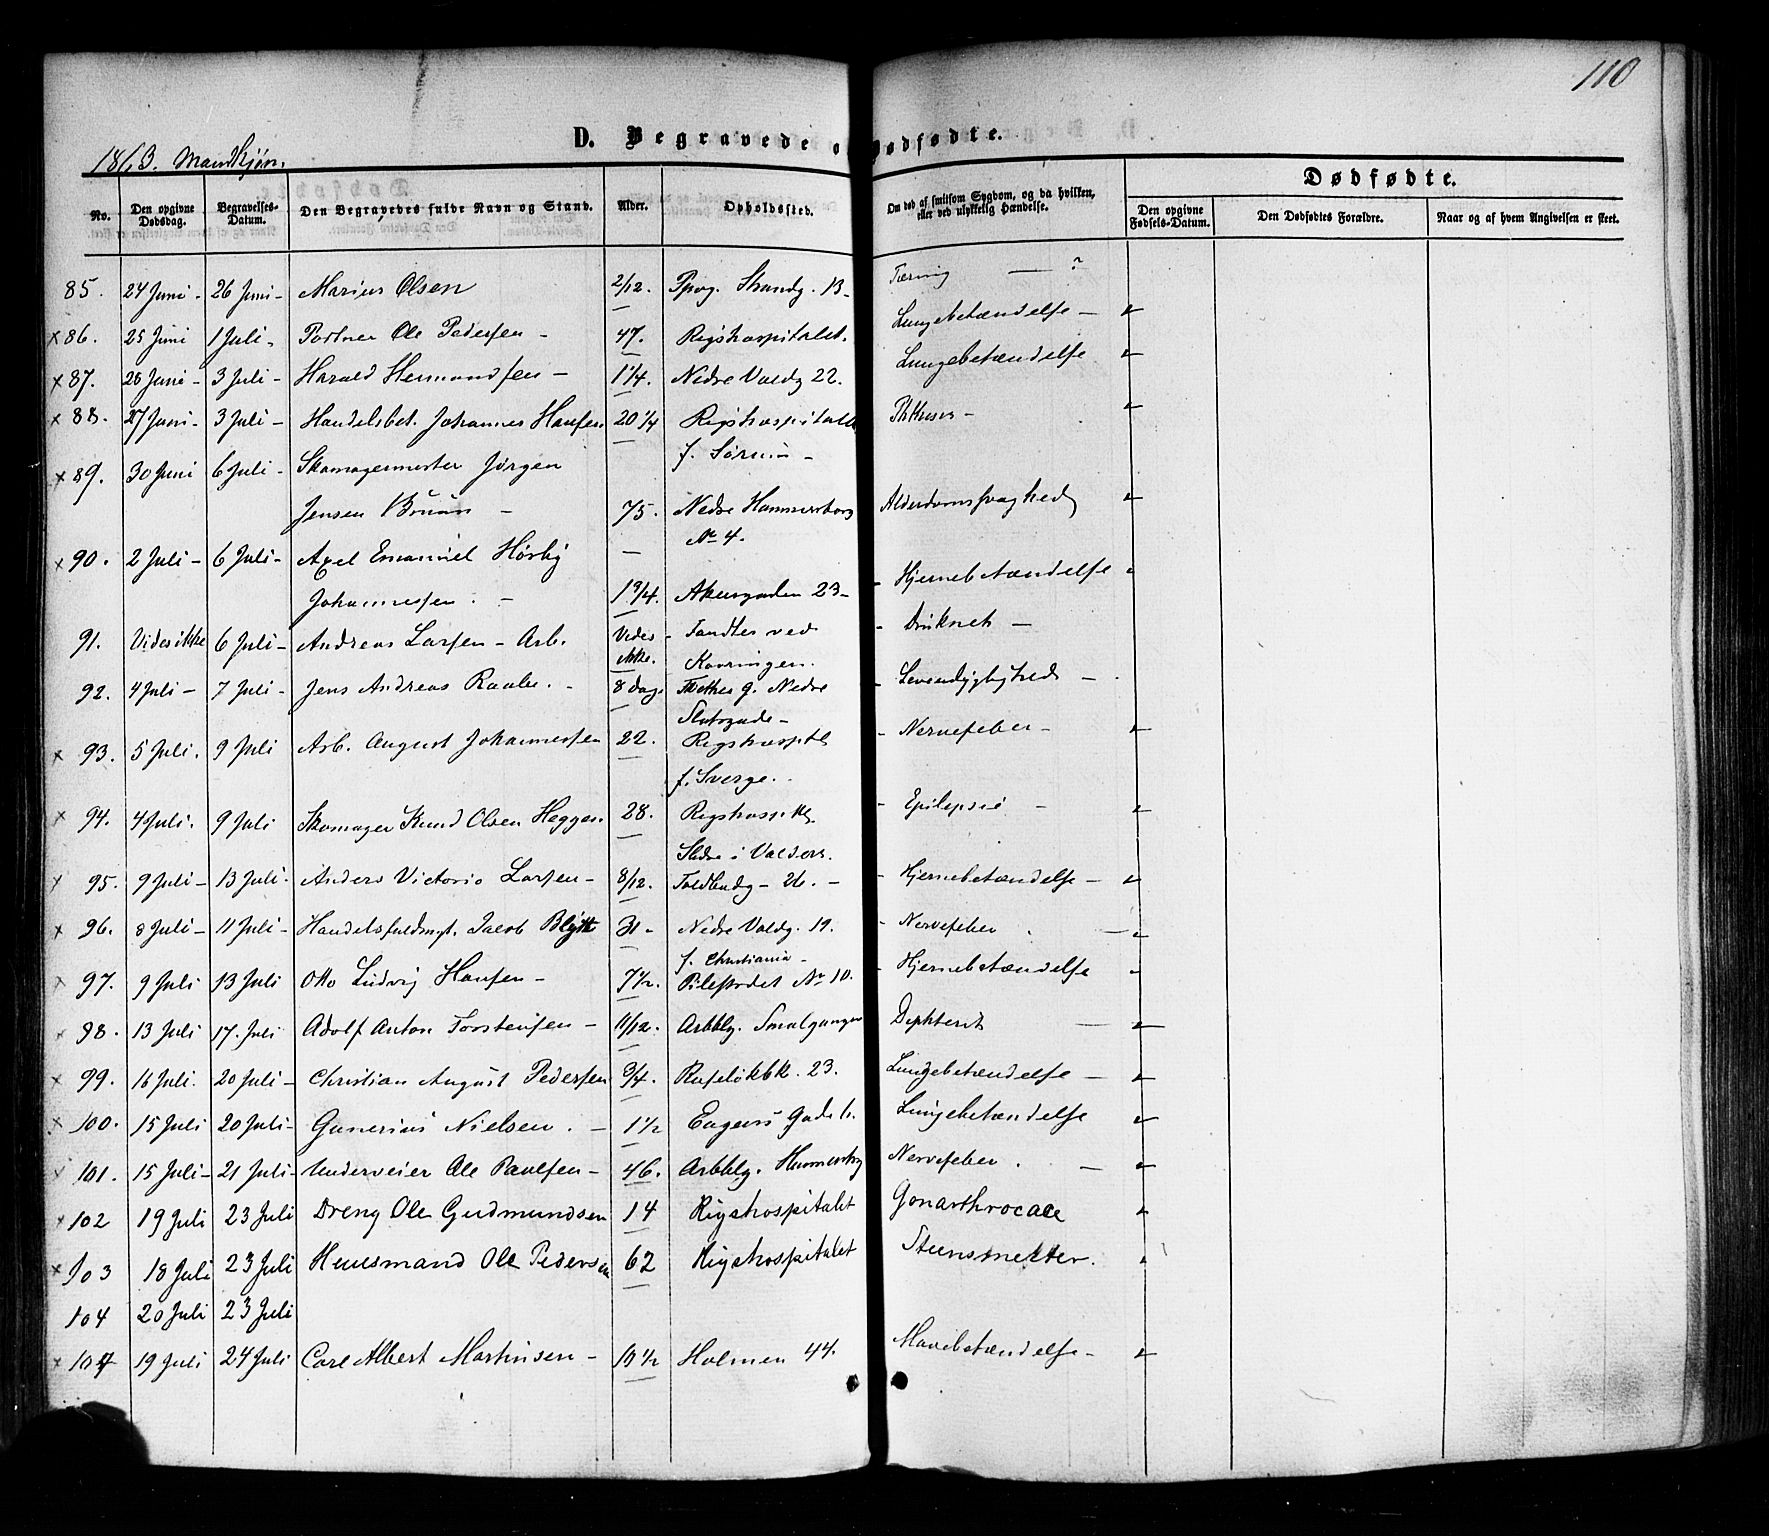 110
D. Begravede o Dødfødte.
1863. Mandkjøn.
No. Den opgivne Dødsdag. Begravelses-Datum. Den Begravedes fulde Navn og Stand. Alder. Opholdssted. Om død af smitsom Sygdom, og da hvilken, eller ved ulykkelig Hændelse. Dødfødte.
Den opgivne Fødsels-Datum. Den Dødfødtes Forældre. Naar og af hvem Angivelsen er skeet.
85. 24 Juni - 26 Juni - Marius Olsen 2/12. Ppvg. Strandg. 13 - Tæring — ?
x 86. 25 Juni 1 Juli - Portner Ole Pedersen - 47. Rigshospitalet. Lungebetændelse -
x 87. 26 Juni - 3 Juli - Harald Hermandsen - 1 1/4. Nedre Voldg 22. Lungebetændelse
x 88. 27 Juni - 3 Juli - Handelsbet. Johannes Hansen 20 1/4 Rigshospitalet Phthisis -
f. Sørum -
x 89. 30 Juni 6 Juli - Skomagermester Jørgen
Jensen Bruun - 75. Nedre Hammersborg Alderdomssvaghed
No 4.
x 90. 2 Juli - 6 Juli - Axel Emanuel Hørby
Johannessen. - 1 3/4. Akersgaden 23 - Hjernebetændelse
91. Vides ikke 6 Juli - Andreas Larsen - Arb. Vides ikke. Fandtes ved - Druknet -
Kavringen.
92. 4 Juli - 7 Juli - Jens Andreas Raabe. - 8 dag g. Nedre - Levendygtighed -
Slotsgade -
x 93. 5 Juli. 9 Juli Arb. August Johannessen 22. Rigshospitl - Nervefeber -
f. Sverge.
x 94. 4 Juli. 9 Juli Skomager Knud Olsen Heggen 28. Rigshospitl. - Epilepsie -
Slidre i Valders.
x 95. 9 Juli - 13 Juli. Anders Victorio Larsen - 8/12. Toldbodg - 26. - - Hjernebetændelse -
x 96. 8 Juli - 11 Juli - Handelsfuldmgt. Jacob Blytt 31 - Nedre Voldg. 19. - Nervefeber. —
f. Christiania -
x 97. 9 Juli 13 Juli Otto Ludvig Hansen - 7 1/2. Pilestrædet No 10. - Hjernebetændelse
x 98. 13 Juli 17. Juli Adolf Anton Torstensen - 11/12. Arbblg. Smalgangen Diphterit —
x 99. 16 Juli. 20 Juli - Christian August Pedersen 3/4. Roseløkbk. 23. Lungebetændelse -
x 100. 15 Juli 20 Juli - Gunerius Nielsen. - 1 1/2 Eugens Gade 6. Lungebetændelse
x 101. 15 Juli - 21 Juli Underveier Ole Paulsen - 46. Arbblg. Hammersbg Nervefeber. —
x 102 19 Juli 23 Juli Dreng Ole Gudmundsen 14 Rigshospitalet Gonarthrocace
x 103 18 Juli 23 Juli Huusmand Ole Pedersen 62 Rigshospitalet Steensmerter.
104 20 Juli 23 Juli
x 104 19 Juli 24 Juli Carl Albert Martinsen - 10 1/2 Holmen 44. Mavebetændelse -